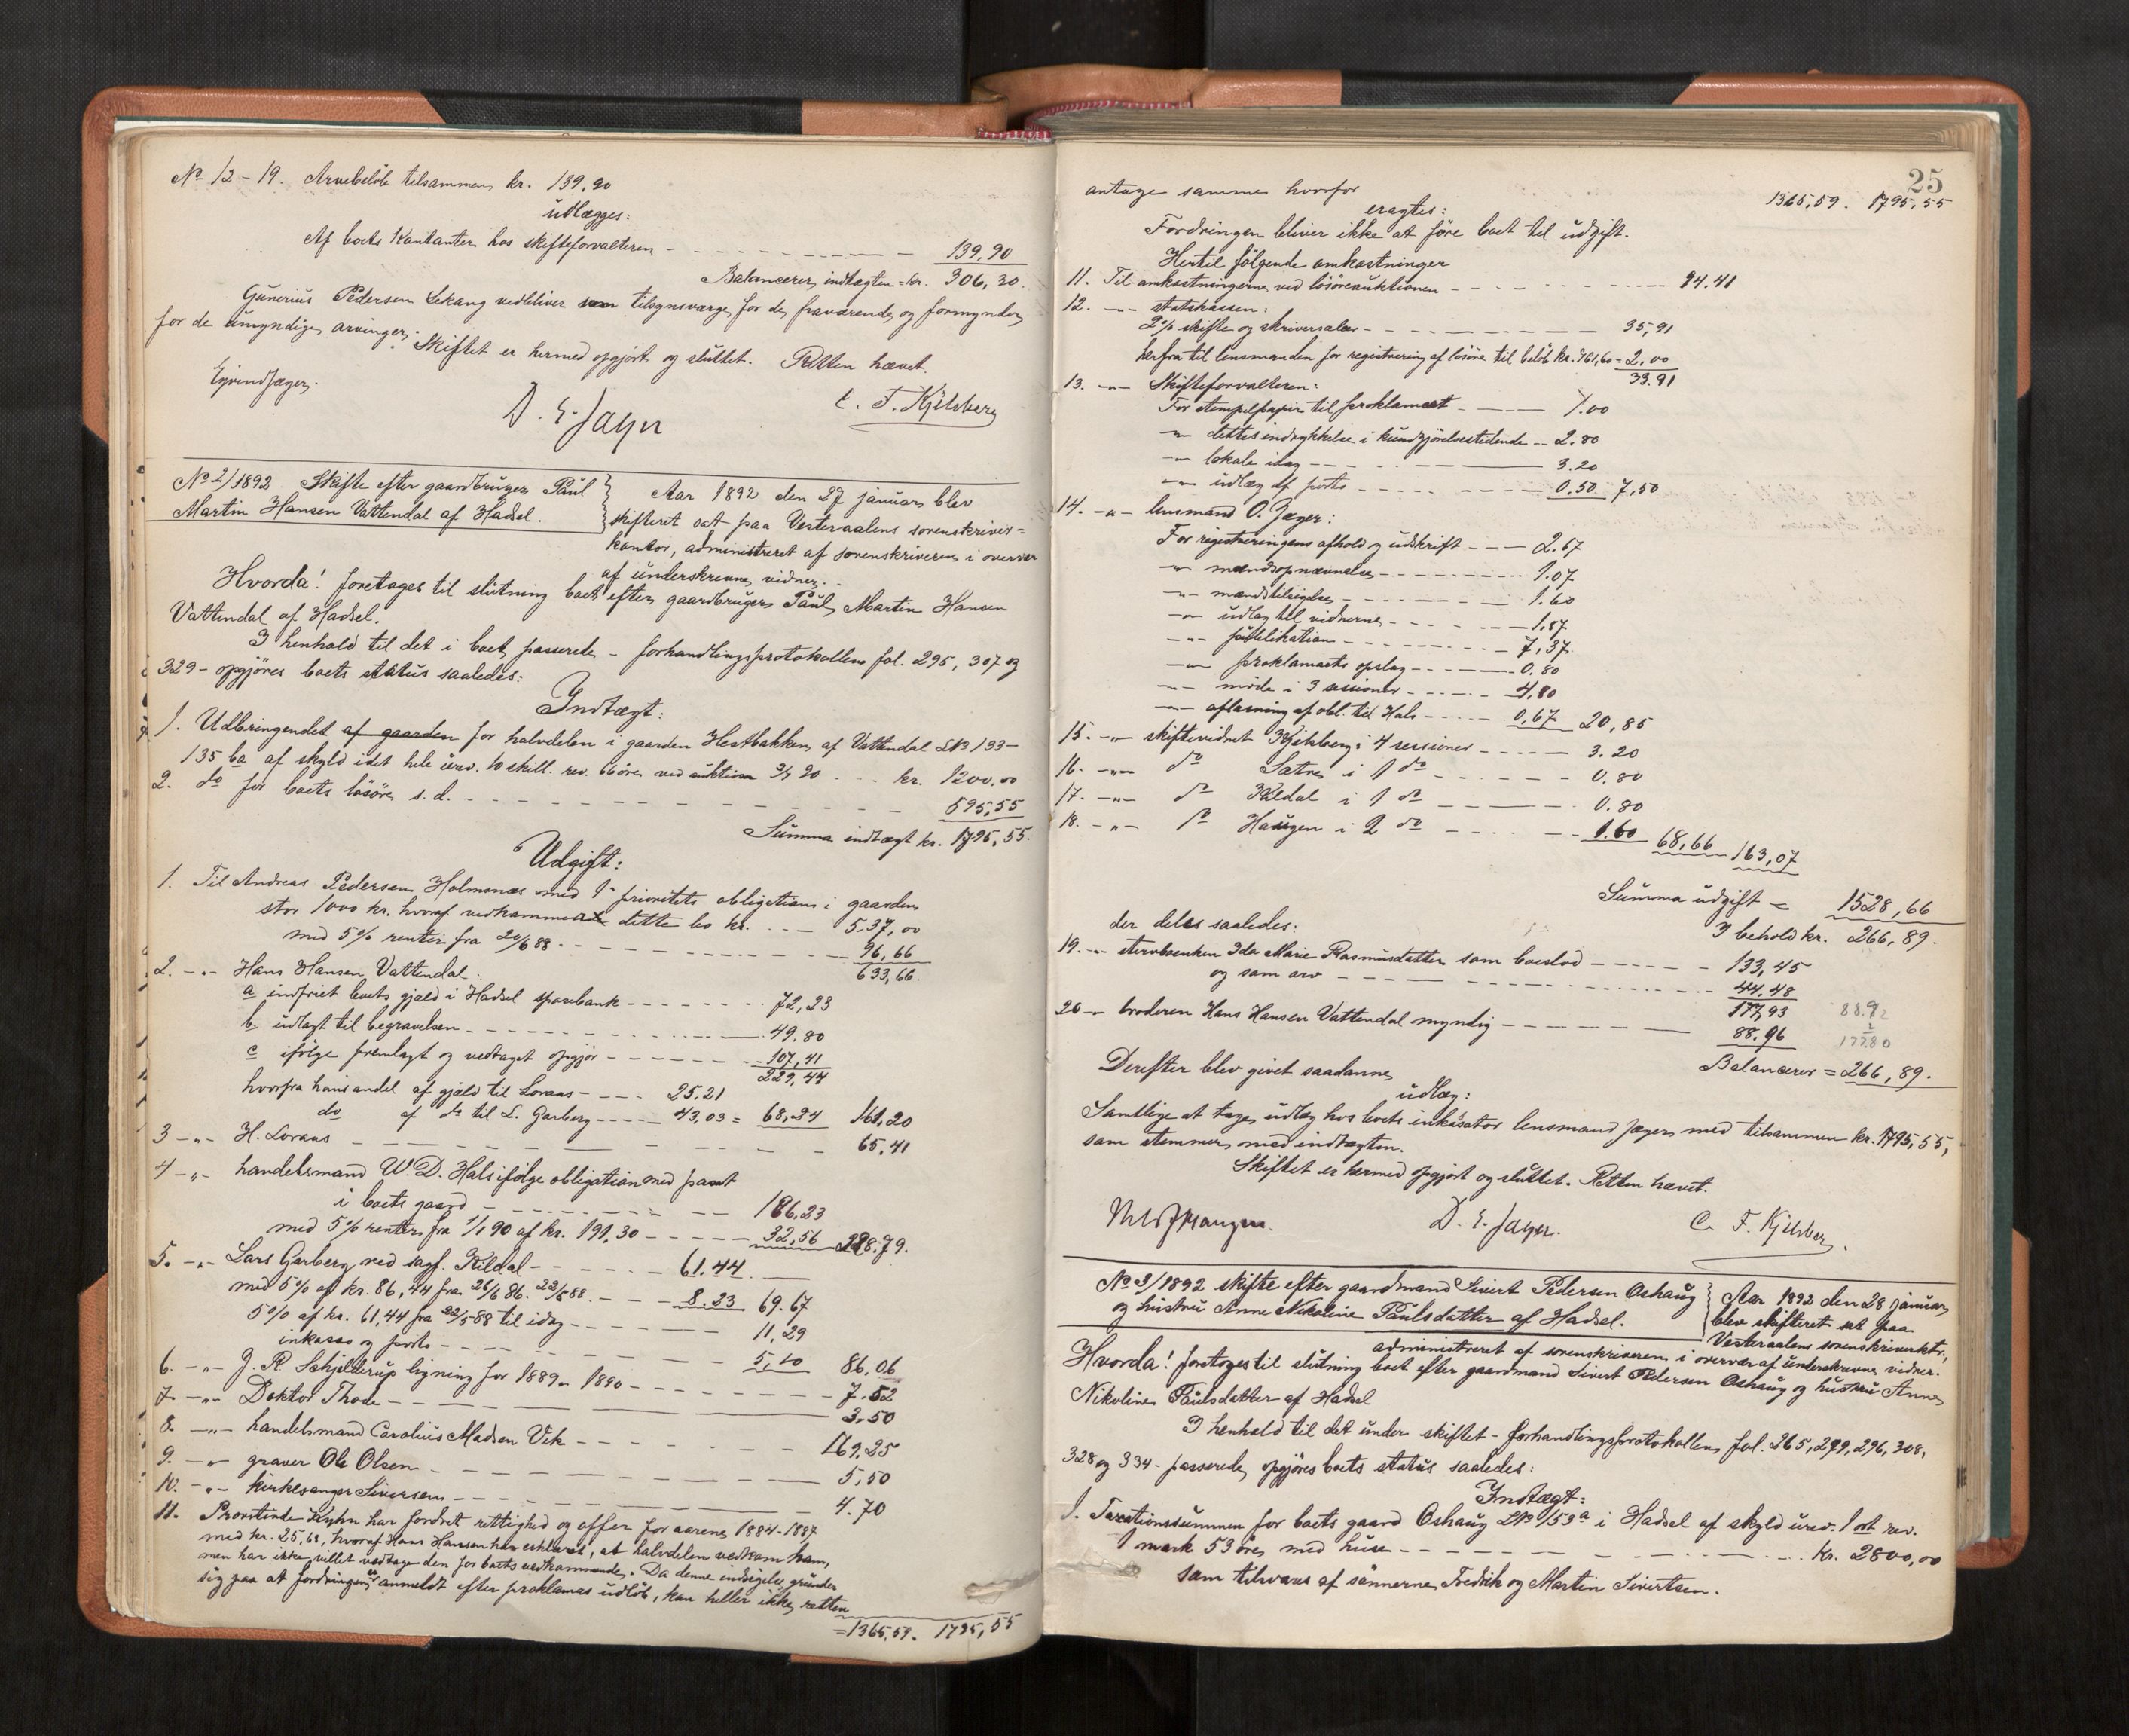 No 12-19. Arvebeløb tilsammen kr. 139,90
udlægges:
Af boets kontanter hos skifteforvalteren 139,90
Balancerer indtægten = kr. 306,30.
Gunerius Pedersen Sekang vedbliver som tilsynsværge for de fraværende og formynder
for de umyndige arvinger.
Skiftet er hermed opgjort og sluttet. Retten hævet.
Eyvind Jæger. D. E. Jæger C. F. Kjelsberg
No 2/1892 Skifte efter gaardbruger Paul
Martin Hansen Vattendal af Hadsel.
Aar 1892 den 27 januar blev
skifteret sat paa Vesteraalens sorenskriver=
kontor, administreret af sorenskriveren i overvær
af underskrevne vidner.
Hvorda! foretages til slutning boet efter gaardbruger Paul Martin Hansen
Vattendal af Hadsel.
I henhold til det i boet passerede - forhandlingsprotokollens fol. 295, 307 og
329 - opgjøres boets status saaledes:
Indtægt:
1. Udbringendet af gaarden for halvdelen i gaarden Hestbakken af Vattendal LNo 133-
135 ba af skyld idet hele urev. 10 skill. rev. 66 øre, ved auktion 3/7 90 kr. 1200.00
2. do for boets løsøre s. d. 595,55
Summa indtægt kr. 1795,55.
Udgift:
1. Til Andreas Pedersen Holmsnæs med 1ste prioritets obligation i gaarden
stor 1000 kr. hvoraf vedkommende dette bo kr. 537,00
med 5% renter fra 20/6 88 96,66
633,66.
2. -"- Hans Hansen Vattendal:
a indfriet boets gjæld i Hadsel sparebank 72,23
b. udlagt til begravelsen 49.80
c ifølge fremlagt og vedtaget opgjør 107,41
229,44
hvorfra hans andel af gjæld til Loraas 25.21
do af do til L. Garberg 43,03 = 68,24 161,20
3 -"- H. Loraas 65,41
4 -"- handelsmand W. D. Hals ifølge obligation med pant
i boets gaard 186,23
med 5% renter fra 1/1 90 af kr. 191,30 32,56 218.79.
5. -"- Lars Garberg ved sagf. Kildal 61.44
med 5% af kr. 86,44 fra 26/6 86 - 22/5 88 8.23 69.67
5% af kr. 61,44 fra 22/5 88 til idag 11,29
inkasso og porto 5,10 86,06
6. -"- J. R Schjelderup ligning for 1889 - 1890 7.52
7 -"- Doktor Thode 3.50
8. -"- handelsmand Carolius Madsen Vik 169,25
9. -"- graver Ole Olsen 5,50
10. -"- kirkesanger Siversen 4.70
11. Provstinde Kyhn har fordret rettighed og offer for aarene 1884-1887
med kr. 25,68, hvoraf Hans Hansen har erklæret, at halvdelen vedkom ham,
men har ikke villet vedtage den for boets vedkommende. Da denne indsigelse grunder
sig paa at fordringen er anmeldt efter proklamas udløb, kan heller ikke retten
= 1365,59. 1795,55
25
antage samme hvorfor 1365,59. 1795,55
eragtes:
Fordringen bliver ikke at føre boet til udgift.
Hertil følgende omkostninger
11. Til omkostningerne ved løsøreauktionen 94.41
12. -"- statskassen:
2% skifte og skriversalær 35,91
herfra til lensmanden for registrering af løsøre til beløb kr. 761,60 = 2,00
33.91
13. -"- Skifteforvalteren:
For stempelpapir til proklamaet 1.00
-"- dettes indrykkelse i kundgjørelsestidende 2.80
-"- lokale idag 3.20
-"- udlæg af porto 0,50 7,50
14. -"- lensmand O. Jæger:
For registreringens afhold og udskrift 2.67
-"- mændsopnævnelse 1.07
-"- mændstilsigelse 1.60
-"- udlæg til vidnerne 1.87
-"- publikation 7,37.
-"- proklamaets opslag 0.80
-"- møde i 3 sessioner 4.80
-"- aflæsning af obl. til Hals 0,67 20,85
15. -"- skiftevidnet Kjelsberg i 4 sessioner 3.20
16. -"- do Sætre i 1 do 0.80
17. -"- do Kildal i 1 do 0.80
18. -"- do Haugen i 2 do 1.60 68,66 163,07
Summa udgift = 1528,66
I behold kr. 266,89.
der deles saaledes:
19. -"- sterboenken Ida Marie Rasmusdatter som boeslod 133,45
og som arv 44.48
177,93
20 -"- broderen Hans Hansen Vattendal myndig 88.96
88.92
2
177.80
Balancerer = 266,89.
Derefter blev givet saadanne
udlæg:
Samtlige at tage udlæg hos boets inkasator lensmand Jæger med tilsammen kr. 1795,55,
som stemmer med indtægten.
Skiftet er hermed opgjort og sluttet. Retten hævet.
Haugen. D. E. Jæger. C. F. Kjelsberg.
No 3/1892 skifte efter gaardmand Sivert Pedersen Oshaug
og hustru Anne Nikoline Paulsdatter af Hadsel.
Aar 1892 den 28 januar
blev skifteret sat paa
Vesteraalens sorenskriverktr.,
administreret af sorenskriveren i overvær af underskrevne vidner.
Hvorda! foretages til slutning boet efter gaardmand Sivert Pedersen Oshaug og hustru Anne
Nikoline Paulsdatter af Hadsel
I henhold til det under skiftet - forhandlingsprotokollens fol. 265, 279, 296, 308,
328 og 334 - passerede, opgjøres boets status saaledes:
Indtægt:
1. Taxationssummen for boets gaard Oshaug LNo 153a i Hadsel af skyld urev. 1 ort rev.
1 mark 53 øre, med huse kr. 2800,00
som tilsvares af sønnerne Fredrik og Martin Sivertsen.